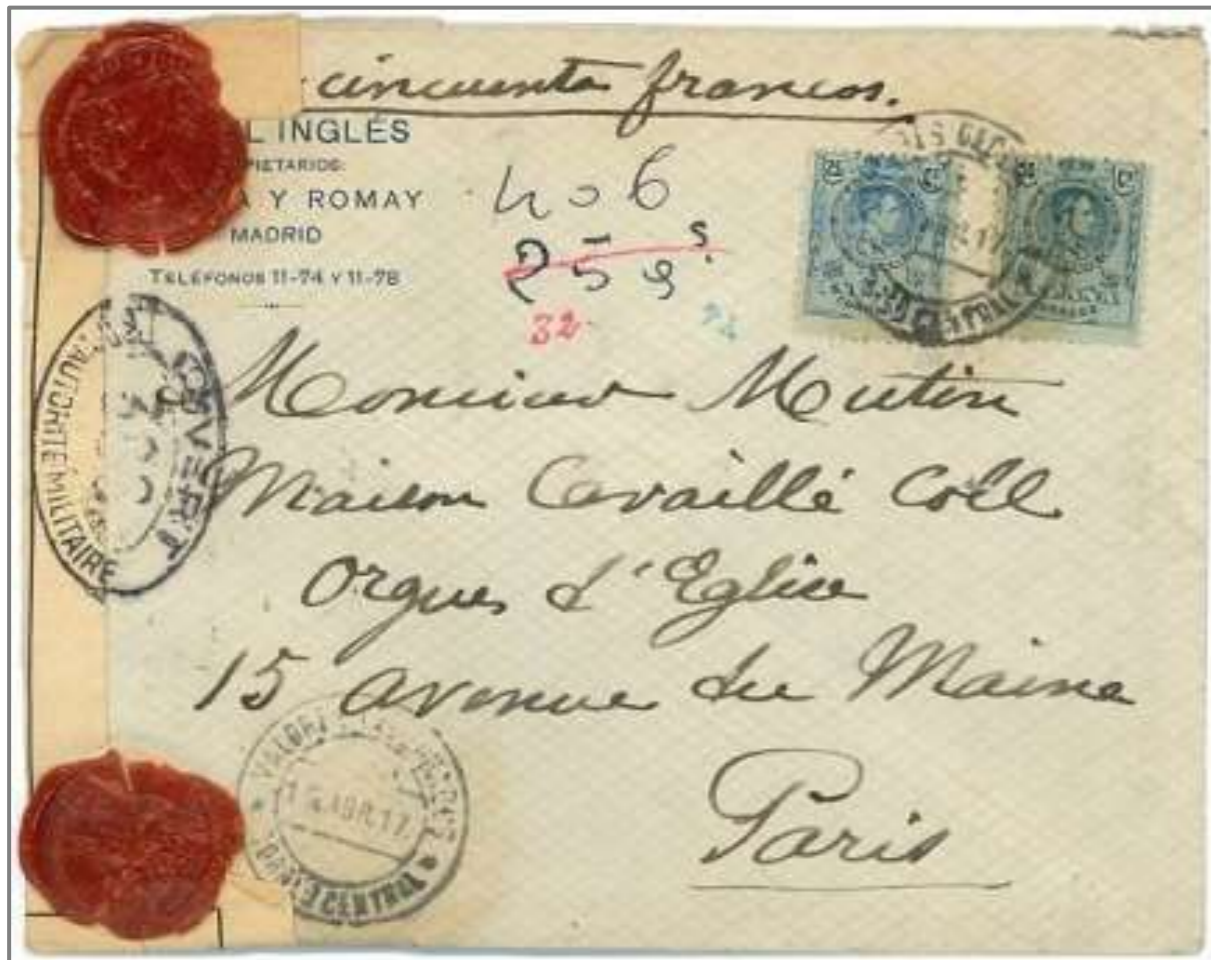 cincuenta francos.
L INGLÉS
PIETARIOS:
A Y ROMAY
MADRID
TELÉFONOS 11-74 Y 11-78
406
259 s.
32
25 25
CORREOS
OUVERT
AUTORITÉ MILITAIRE
Monsieur Mutin
Maison Cavaillé Coll
Orgues d'Eglise
15 avenue du Maine
Paris
VALORES
ABR.17
CENTRAL